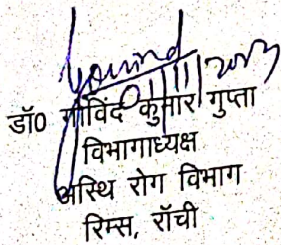 डॉ0 गोविंद कुमार गुप्ता
विभागाध्यक्ष
अस्थि रोग विभाग
रिम्स, राँची